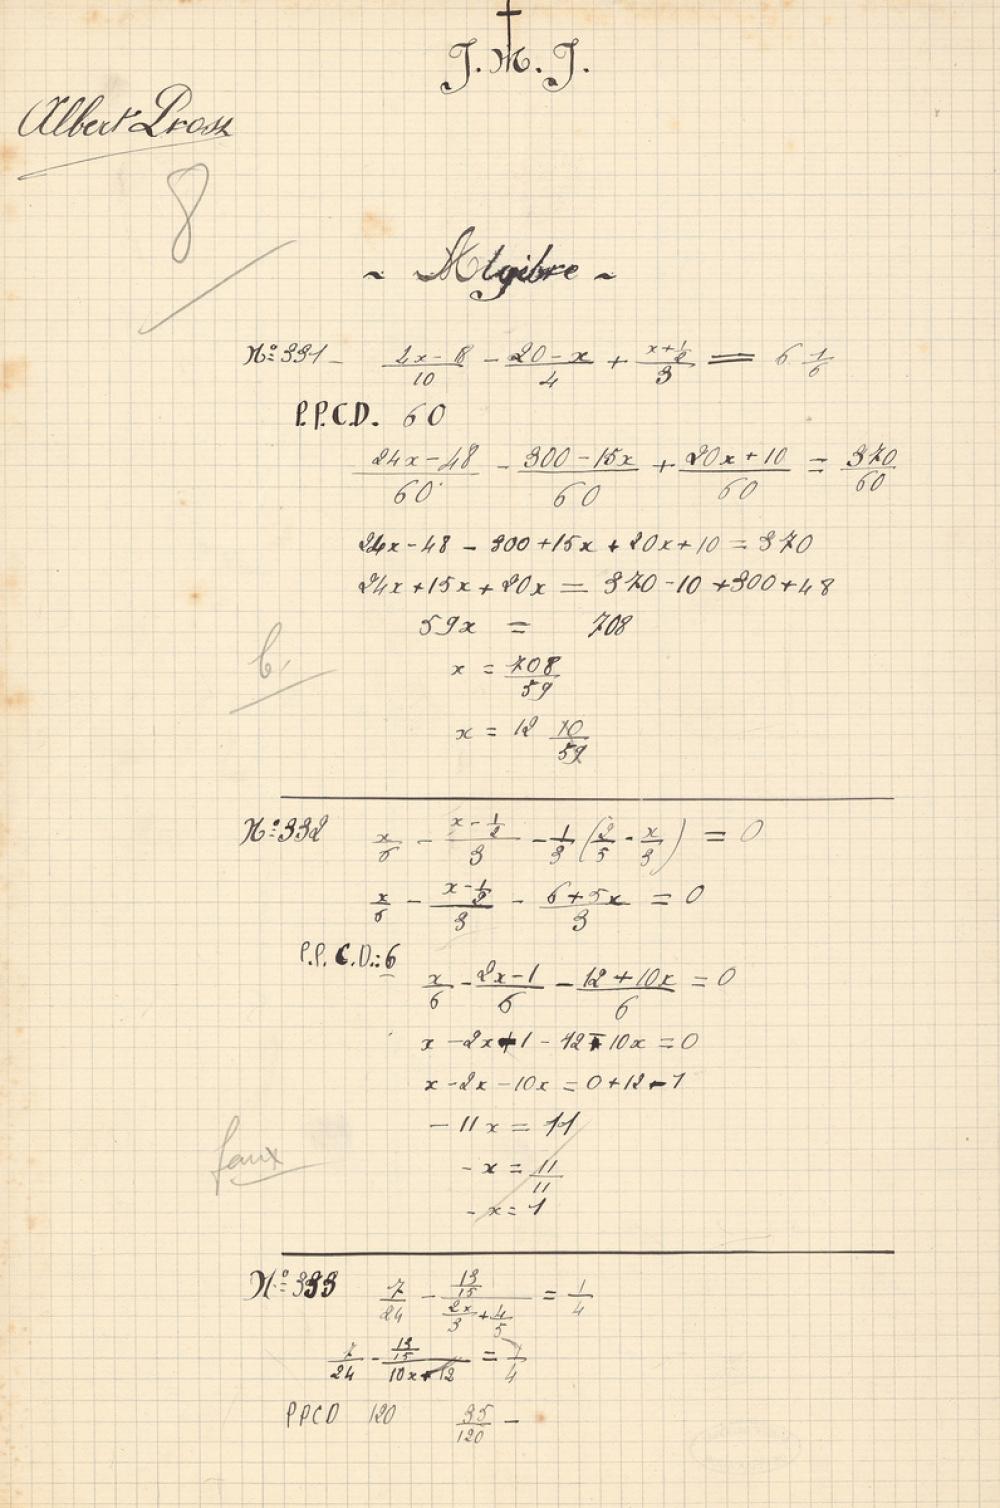 J. M. J.
Albert Pross
8
~ Algèbre ~
N° 331 - (2x-8)/10 - (20-x)/4 + (x+1/2)/3 = 6 1/6
P.P.C.D. 60
(24x-48)/60 - (300-15x)/60 + (20x+10)/60 = 370/60
24x-48 - 300+15x + 20x+10 = 370
24x+15x+20x = 370-10+300+48
59x = 708
b.
x = 708/59
x = 12 10/59
N° 332 x/6 - (x-1/2)/3 - 1/3 (2/5 - x/3) = 0
x/6 - (x-1/2)/3 - (6+5x)/3 = 0
P.P.C.D.: 6
x/6 - (2x-1)/6 - (12+10x)/6 = 0
x - 2x+1 - 12-10x = 0
x-2x-10x = 0+12-1
- 11x = 11
faux
- x = 11/11
- x = 1
N° 333 7/24 - (13/15)/(2x/3 + 4/5) = 1/4
7/24 - (13/15)/(10x+12) = 1/4
PPCD 120 35/120 -